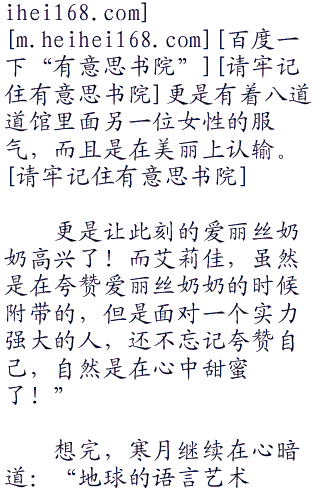 ihei168.com]
[m.heihei168.com][百度一
下“有意思书院”][请牢记
住有意思书院]更是有着八道
道馆里面另一位女性的服
气，而且是在美丽上认输。
[请牢记住有意思书院]
更是让此刻的爱丽丝奶
奶高兴了！而艾莉佳，虽然
是在夸赞爱丽丝奶奶的时候
附带的，但是面对一个实力
强大的人，还不忘记夸赞自
己，自然是在心中甜蜜
了！”
想完，寒月继续在心暗
道：“地球的语言艺术